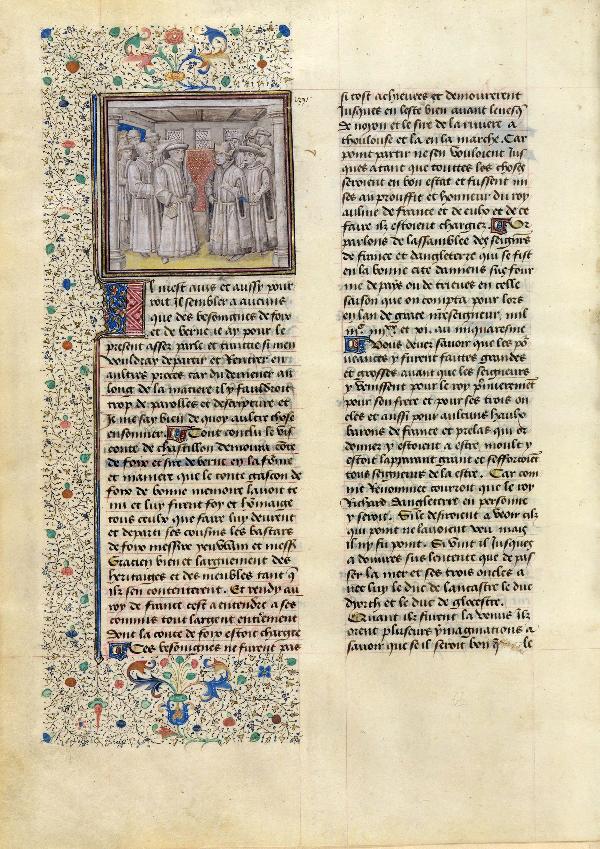 Il mest auis et aussy pour
roit il sembler a aucuns
que des besongnes de foix
et de berne ie ay pour le
present assez parle et traitie si men
vouldray departir et Rentrer en
aultres proces car du demener au
long de la matiere il y fauldroit
trop de parolles et descripture et
Je me say bien de quoy aultre chose
ensonnier. Tout conclu le vis
conte de chastillon demoura côte
de foix et sire de berne en la fôme
et maniere que le conte gascon de
foix de bonne memoire lauoit te
nu et luy firent foy et homaige
tous ceulx que faire luy deuoient
et departi ses cousins les bastars
de foix messire yeuwain et mess̄
Gracien bien et largement des
heritaiges et des meubles tant q̄
ilz sen contenterent. Et rendy au
roy de france cest a entendre a ses
commis tout largent entierement
dont la conte de foix estoit chargee
Ces besongnes ne furent pas
si tost achieuees et demourerent
Jusques en leste bien auant leuesq̄
de noyon et le sire de la riuiere a
thoulouse et la en la marche. Car
point partir ne sen vouloient Jus
ques a tant que touttes les choses
seroient en bon estat et fussent mi
ses au prouffit et honneur du roy
au de france et de ce
faire ilz estoient chargiez. Or
parlons de lassamblee des seigñrs
de france et dangleterre qui se fist
en la bonne cite damiens sus four
me de paix ou de trieues en celle
saison que on compta pour lors
en lan de grace nreseigneur, mil
iijᶜ. iiijˣˣ et xi. au miquaresme
Vous deuez sauoir que les po
ueances y furent faittes grandes
et grosses auant que les seigneurs
y venissent pour le roy p̄mierement
pour son frere et pour ses trois on
cles et aussi pour aulcuns haulx
barons de france et prelas qui or
donnez y estoient a estre moult y
estoit lapparant grant et sefforcoiēt
tous seigneurs de la estre. Car com
mune Renommee courroit que le roy
Richard dangleterre en personne
y seroit. Si le desiroient a veoir cilz
qui point ne lauoient veu mais
il ny fu point. Si vint il Jusques
a douures sus lentente que de pas
ser la mer et ses trois oncles a
uec luy le duc de lancastre le duc
dyorch et le duc de glocestre.
Quant ilz furent la venus ilz
orent plusieurs ymaginations a
sauoir que se il seroit bon q̄ le